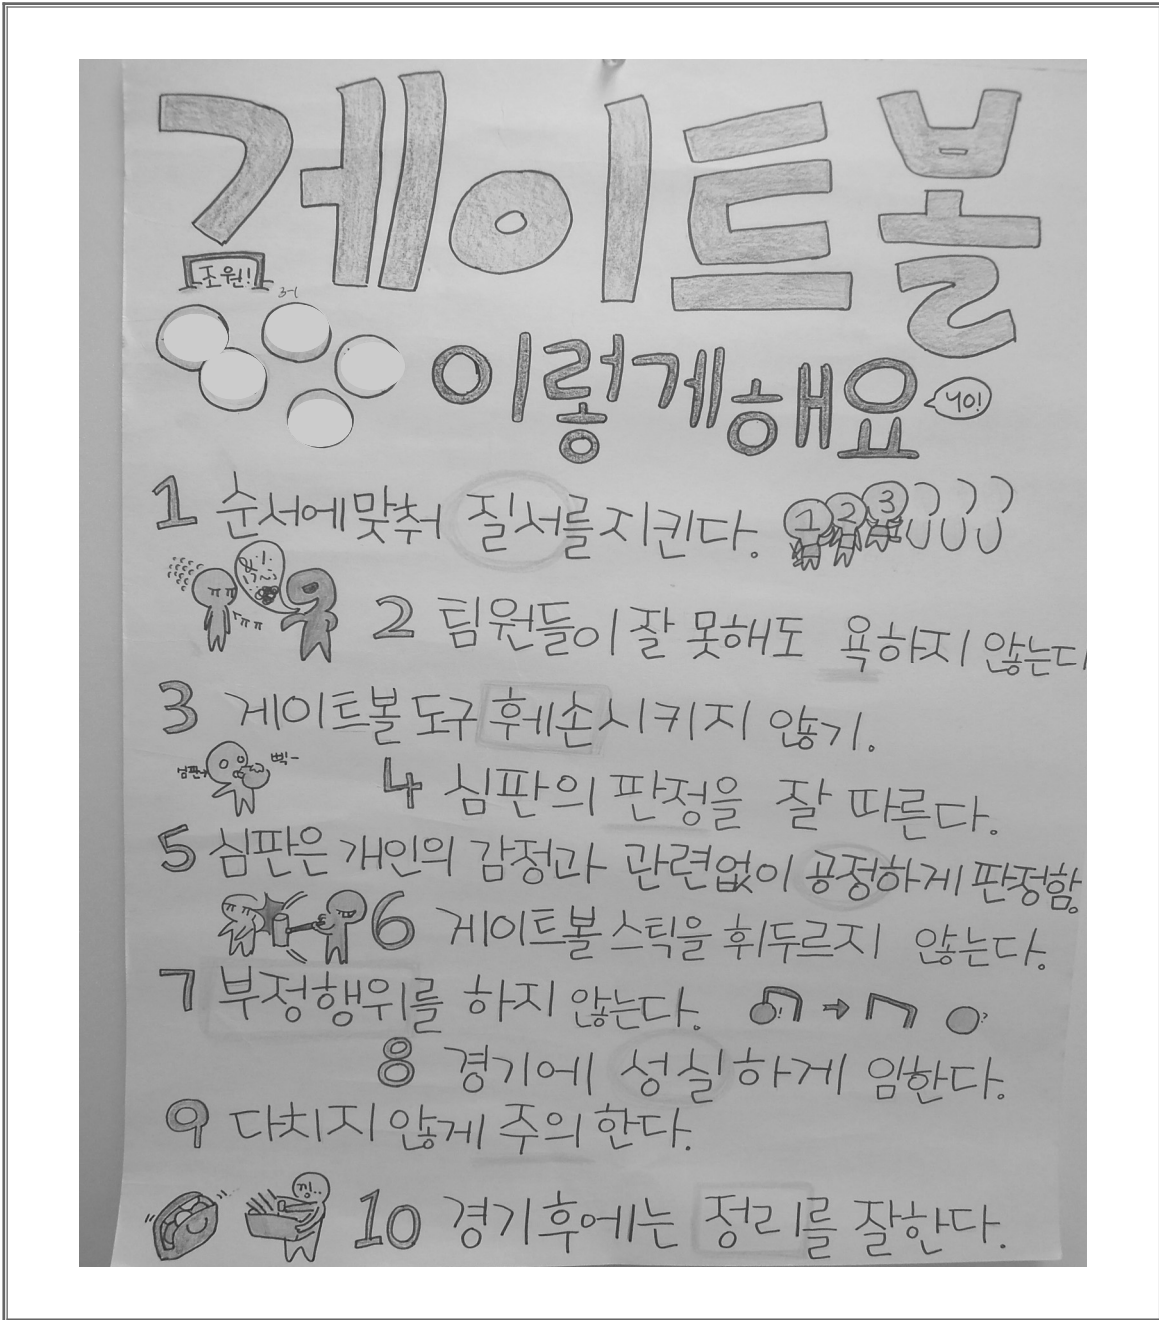 게이트볼
조원!
3-1
이렇게해요
YO!
1 순서에 맞춰 질서를 지킨다.
1 2 3
2 팀원들이 잘 못해도 욕하지 않는다
ㅠㅠ
3 게이트볼 도구 훼손시키지 않기.
심판→
삑-
4 심판의 판정을 잘 따른다.
5 심판은 개인의 감정과 관련없이 공정하게 판정함.
6 게이트볼 스틱을 휘두르지 않는다.
7 부정행위를 하지 않는다.
8 경기에 성실하게 임한다.
9 다치지 않게 주의 한다.
낑..
10 경기후에는 정리를 잘한다.